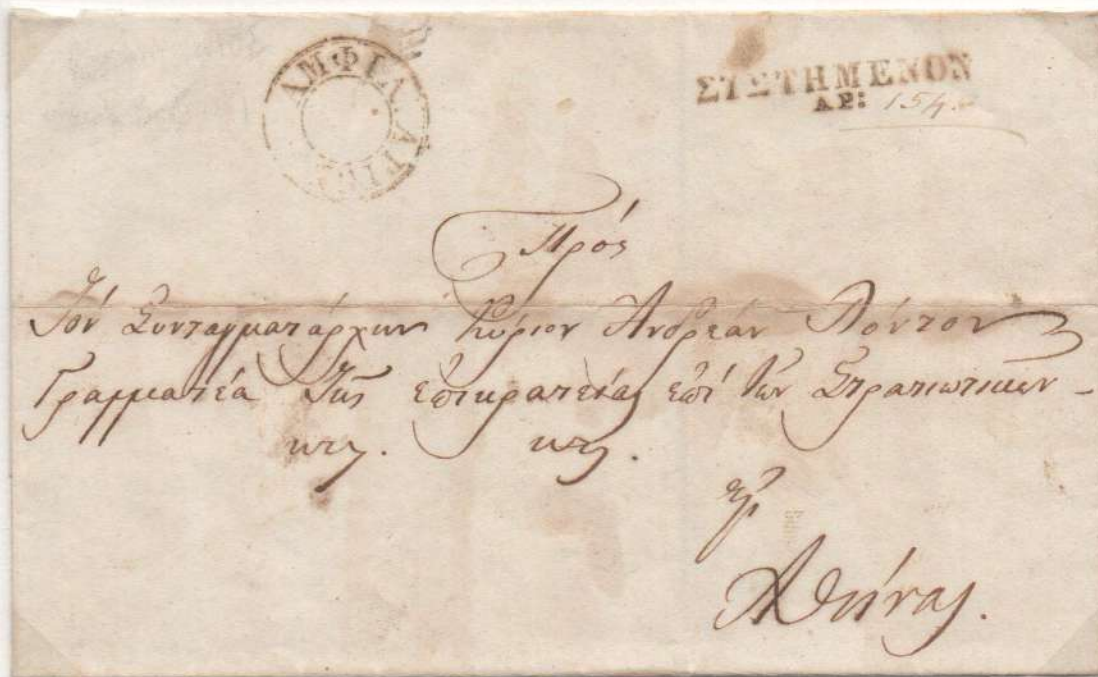 ΑΜΦΙΣΣΑ
ΣΥΣΤΗΜΕΝΟΝ
ΑΡ: 154
Πρός
Τόν Συνταγματάρχην Κύριον Ανδρέαν Λόντον
Γραμματέα Της επικρατείας επί των Στρατιωτικών -
κτλ. κτλ.
Αθήνας.